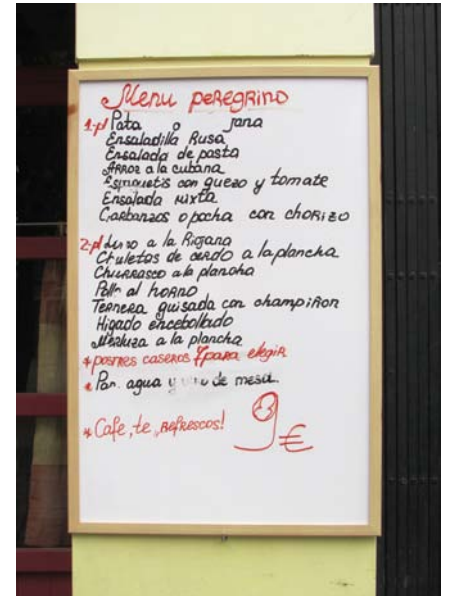 Menu peregrino
1-pl Pata o jana
Ensaladilla Rusa
Ensalada de pasta
Arroz a la cubana
Espaguetis con quezo y tomate
Ensalada mixta
Garbanzos o pocha con chorizo
2-pl a la Riojana
Chuletas de cerdo a la plancha
Churrasco a la plancha
Pollo al horno
Ternera guisada con champiñon
Higado encebollado
Merluza a la plancha
* postres caseros 7 para elegir
* Pan. agua y vino de mesa.
* Cafe, te, refrescos!
9 €